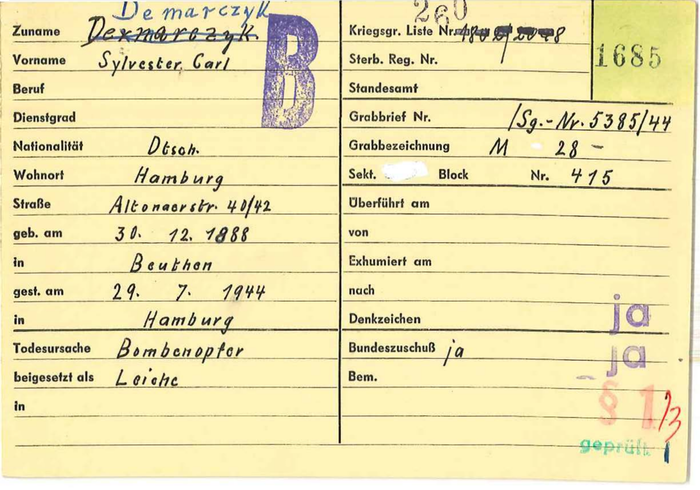 Demarczyk
Zuname Dexmarczyk
Vorname Sylvester Carl
Beruf
Dienstgrad
Nationalität Dtsch.
Wohnort Hamburg
Straße Altonaerstr. 40/42
geb. am 30. 12. 1888
in Beuthen
gest. am 29. 7. 1944
in Hamburg
Todesursache Bombenopfer
beigesetzt als Leiche
in
B
260
Kriegsgr. Liste Nr.
Sterb. Reg. Nr.
Standesamt
1685
Grabbrief Nr. /Sg.-Nr. 5385/44
Grabbezeichnung M 28 -
Sekt. Block Nr. 415
Überführt am
von
Exhumiert am
nach
Denkzeichen ja
Bundeszuschuß ja ja
Bem.
§ 1/3
geprüft